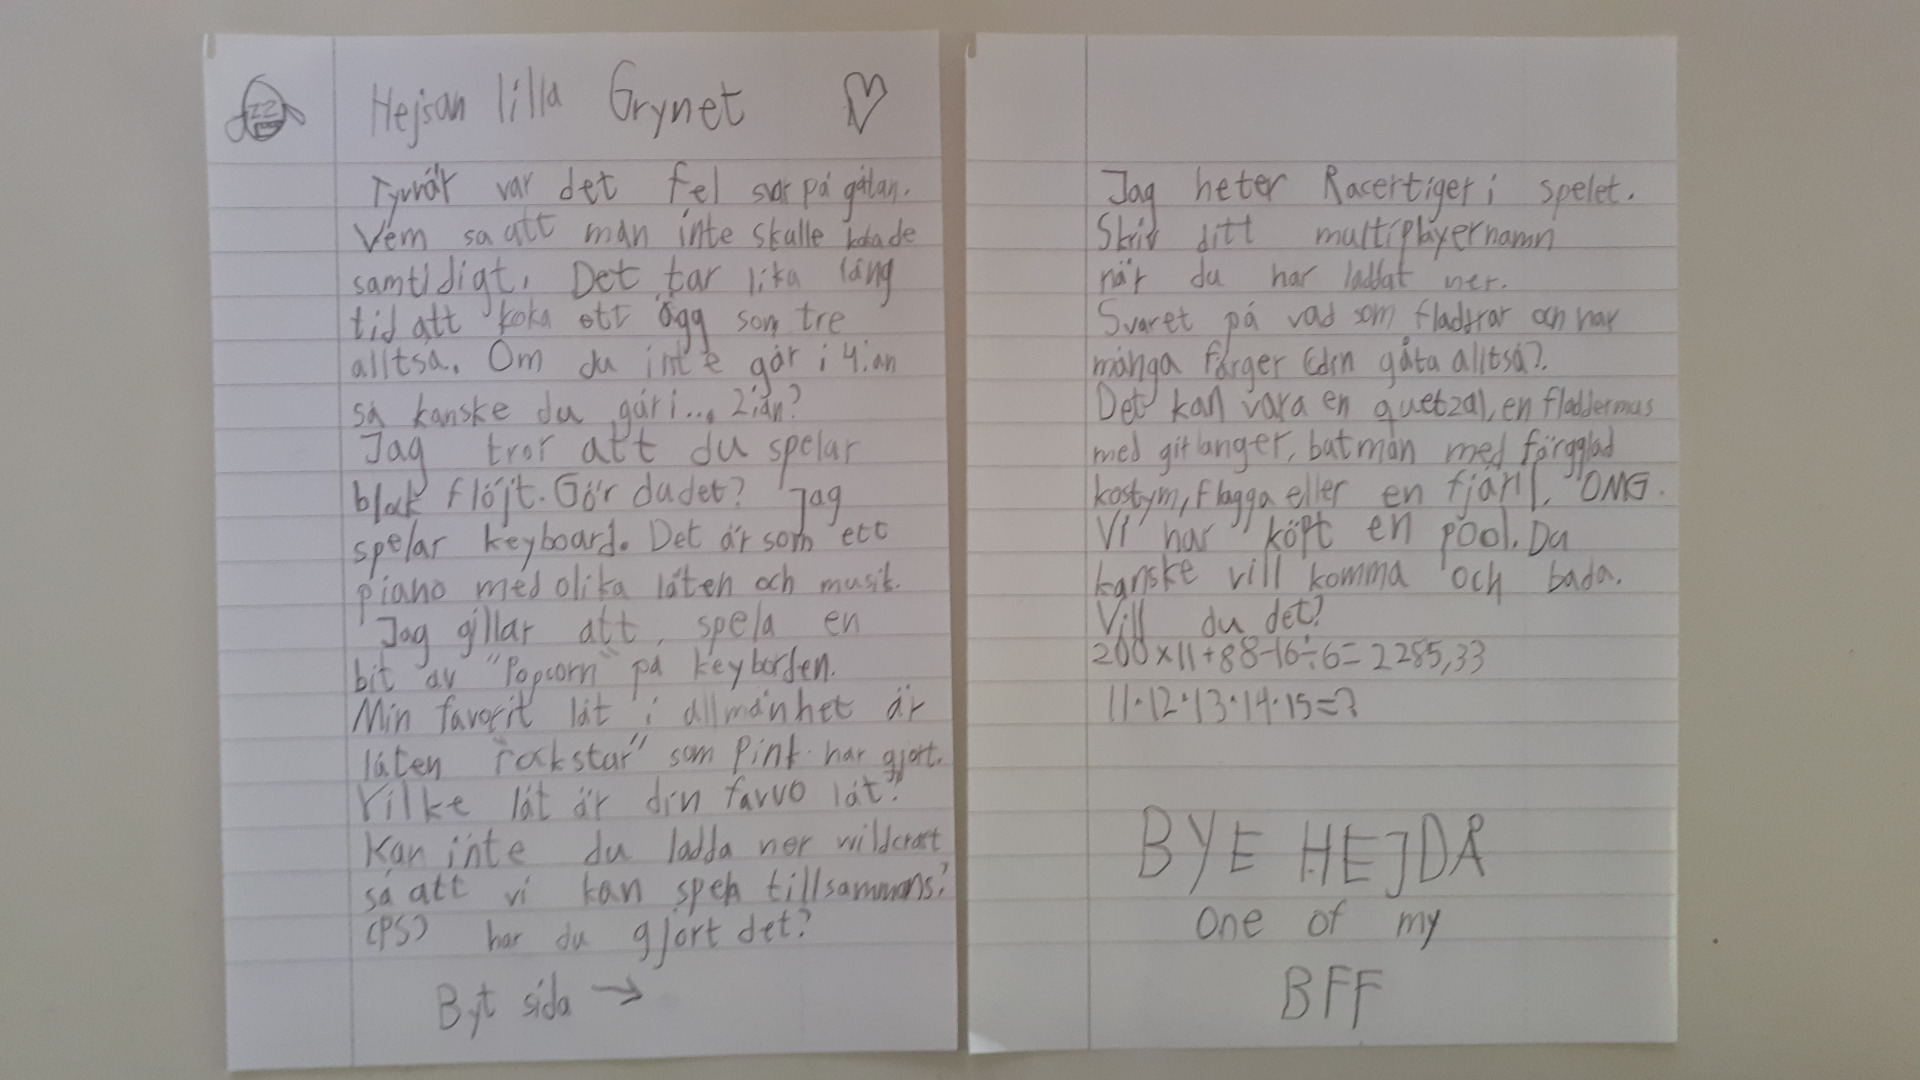 Hejsan lilla Grynet
Tyvvär var det fel svar på gåtan.
Vem sa att man inte skulle koka de
samtidigt. Det tar lika lång
tid att koka ett ägg som tre
alltså. Om du inte går i 4:an
så kanske du går i... 2:an?
Jag tror att du spelar
block flöjt. Gör du det? Jag
spelar keyboard. Det är som ett
piano med olika låten och musik.
Jag gillar att spela en
bit av "Popcorn" på keyborden.
Min favorit låt i allmänhet är
låten "rockstar" som Pink har gjort.
Vilke låt är din favvo låt?
Kan inte du ladda ner wildcraft
så att vi kan spela tillsammans?
(PS) har du gjort det?
Byt sida →
Jag heter Racertiger i spelet.
Skriv ditt multiplayernamn
när du har laddat ner.
Svaret på vad som fladdrar och har
många färger (din gåta alltså).
Det kan vara en quetzal, en fladdermus
med girlanger, batman med färgglad
kostym, flagga eller en fjäril. OMG.
Vi har köpt en pool. Du
kanske vill komma och bada.
Vill du det?
200×11+88-16÷6=2285,33
11·12·13·14·15=?
BYE HEJDÅ
one of my
BFF